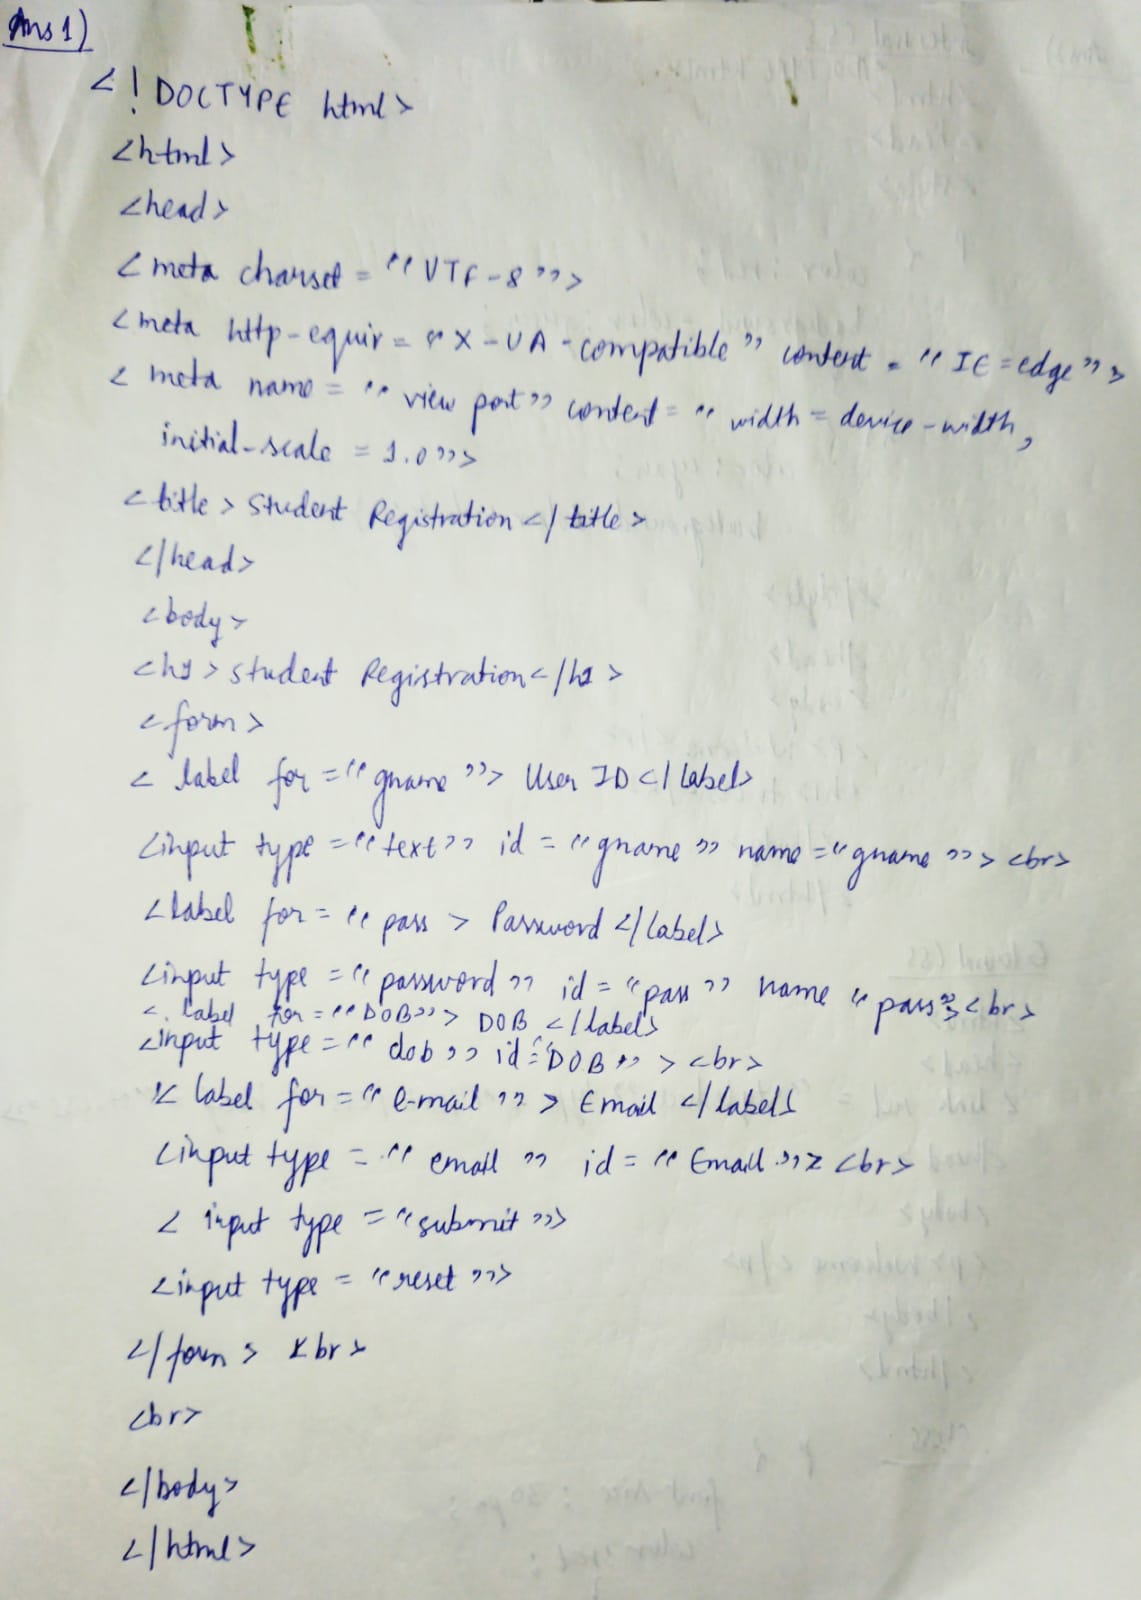 Ans 1)
<! DOCTYPE html>
<html>
<head>
<meta charset = "UTF-8">
<meta http-equiv = "X-UA-compatible" content = "IE=edge">
<meta name = "view port" content = "width = device-width,
initial-scale = 1.0">
<title> Student Registration </title>
</head>
<body>
<h1> Student Registration </h1>
<form>
<label for = "gname"> User ID </label>
<input type = "text" id = "gname" name = "gname"> <br>
<label for = "pass > Password </label>
<input type = "password" id = "pass" name "pass"> <br>
<label for = "DOB"> DOB </label>
<input type = "dob" id = "DOB"> <br>
<label for = "e-mail"> Email </label>
<input type = "email" id = "Email"> <br>
<input type = "submit">
<input type = "reset">
</form> <br>
<br>
</body>
</html>